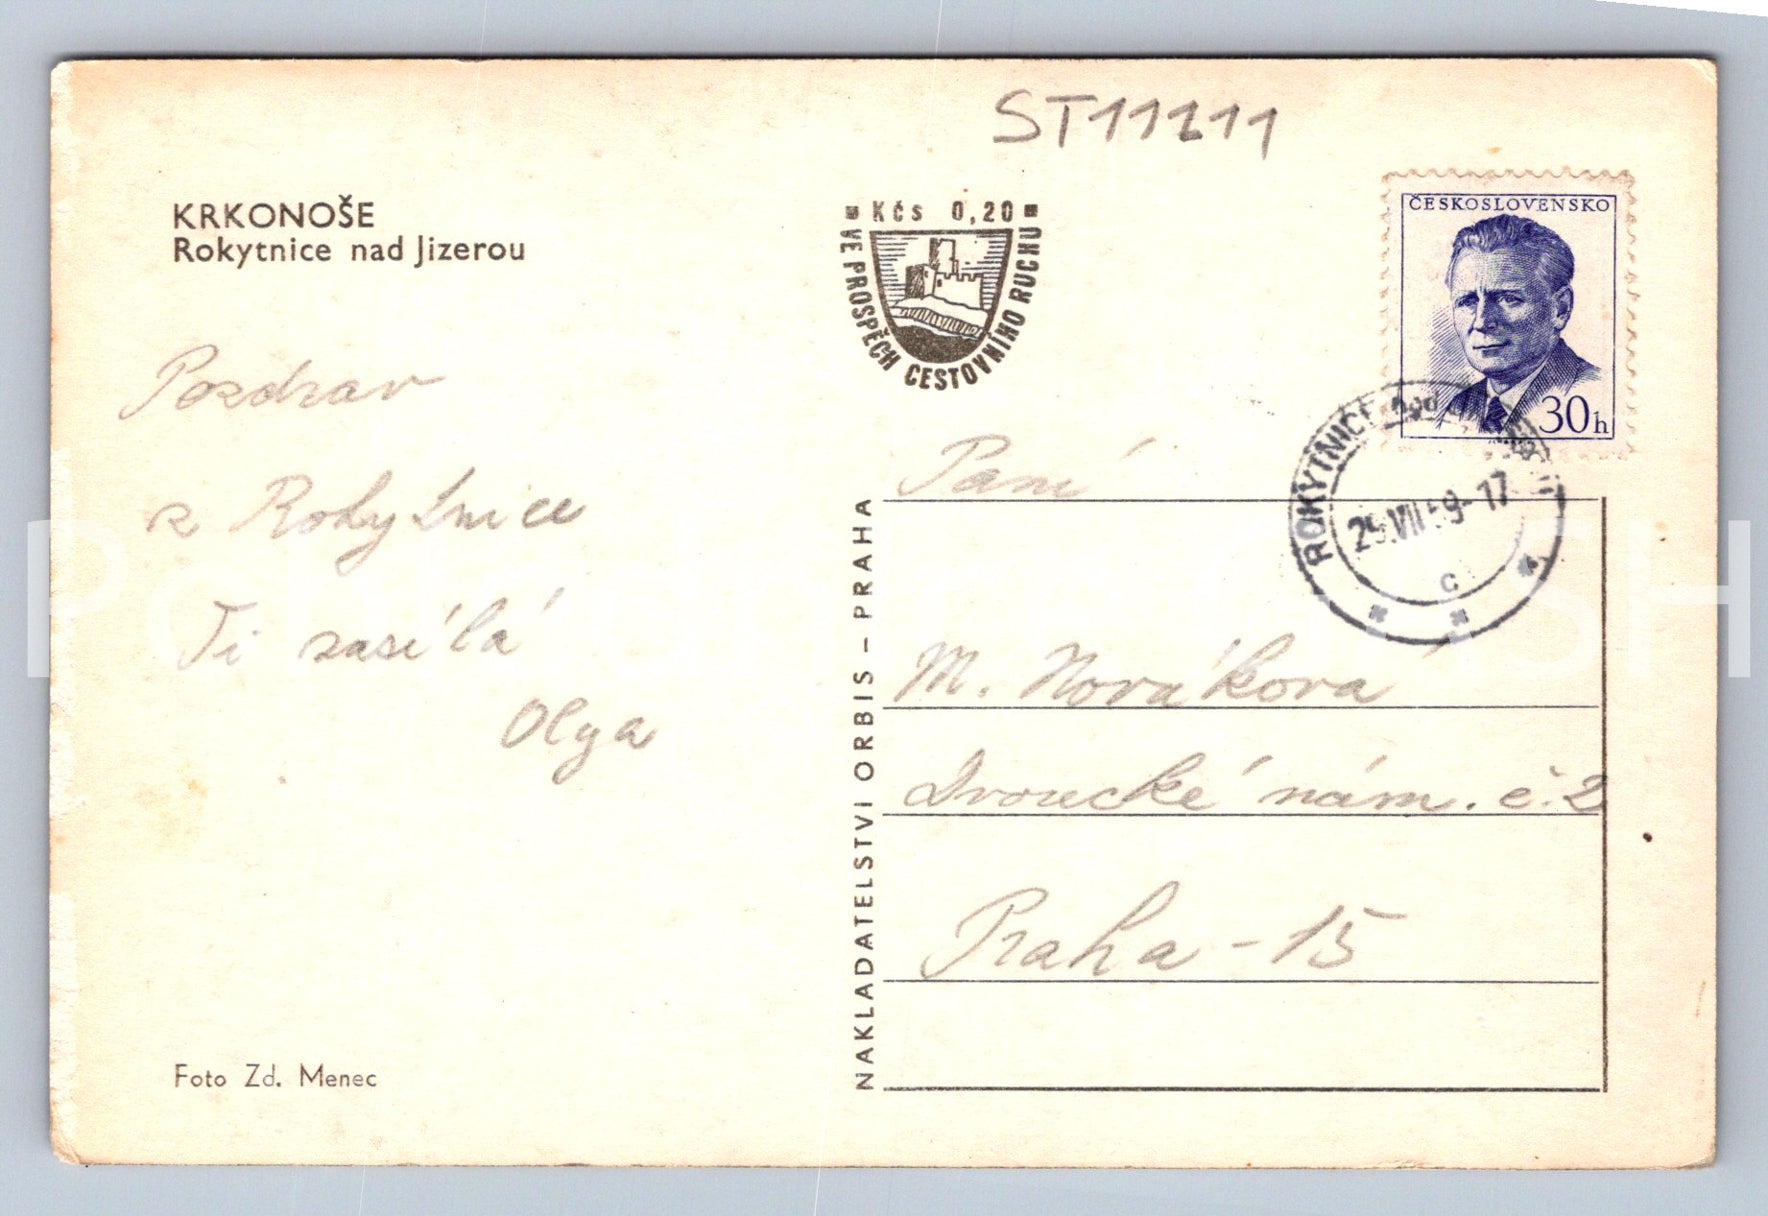 ST11111
KRKONOŠE
Rokytnice nad Jizerou
Kčs 0,20
VE PROSPĚCH CESTOVNÍHO RUCHU
ČESKOSLOVENSKO
30h
ROKYTNICE nad
29.VII.59-17
c
Pozdrav
z Rokytnice
Ti zasílá
Olga
Paní
M. Nováková
Dvorecké nám. č. 2
Praha - 15
NAKLADATELSTVÍ ORBIS – PRAHA
Foto Zd. Menec